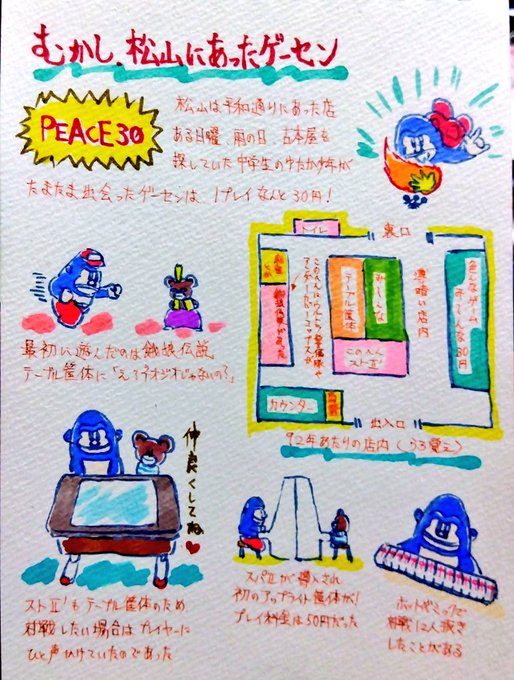 むかし、松山にあったゲーセン
PEACE30
松山は平和通りにあった店
ある日曜、雨の日、古本屋を
探していた中学生のゆたか少年が
たまたま出会ったゲーセンは、1プレイなんと30円!
最初に遊んだのは餓狼伝説。
テーブル筐体に「え?ネオジオじゃないの?」
トイレ
裏口
このへんにウルトラ警備隊や
アンダーカバーコップスが
あった
テーブル筐体
みーんな
このへん
ストⅡ'
薄暗い店内
色んなゲーム
みーんな30円
カウンター
出入口
92年あたりの店内(うろ覚え)
仲良くしてね
ストⅡ'もテーブル筐体のため
対戦したい場合はプレイヤーに
ひと声かけていたのであった
スパⅡが導入され
初のアップライト筐体が!
プレイ料金は50円だった
ホットギミックで
対戦12人抜き
したことがある